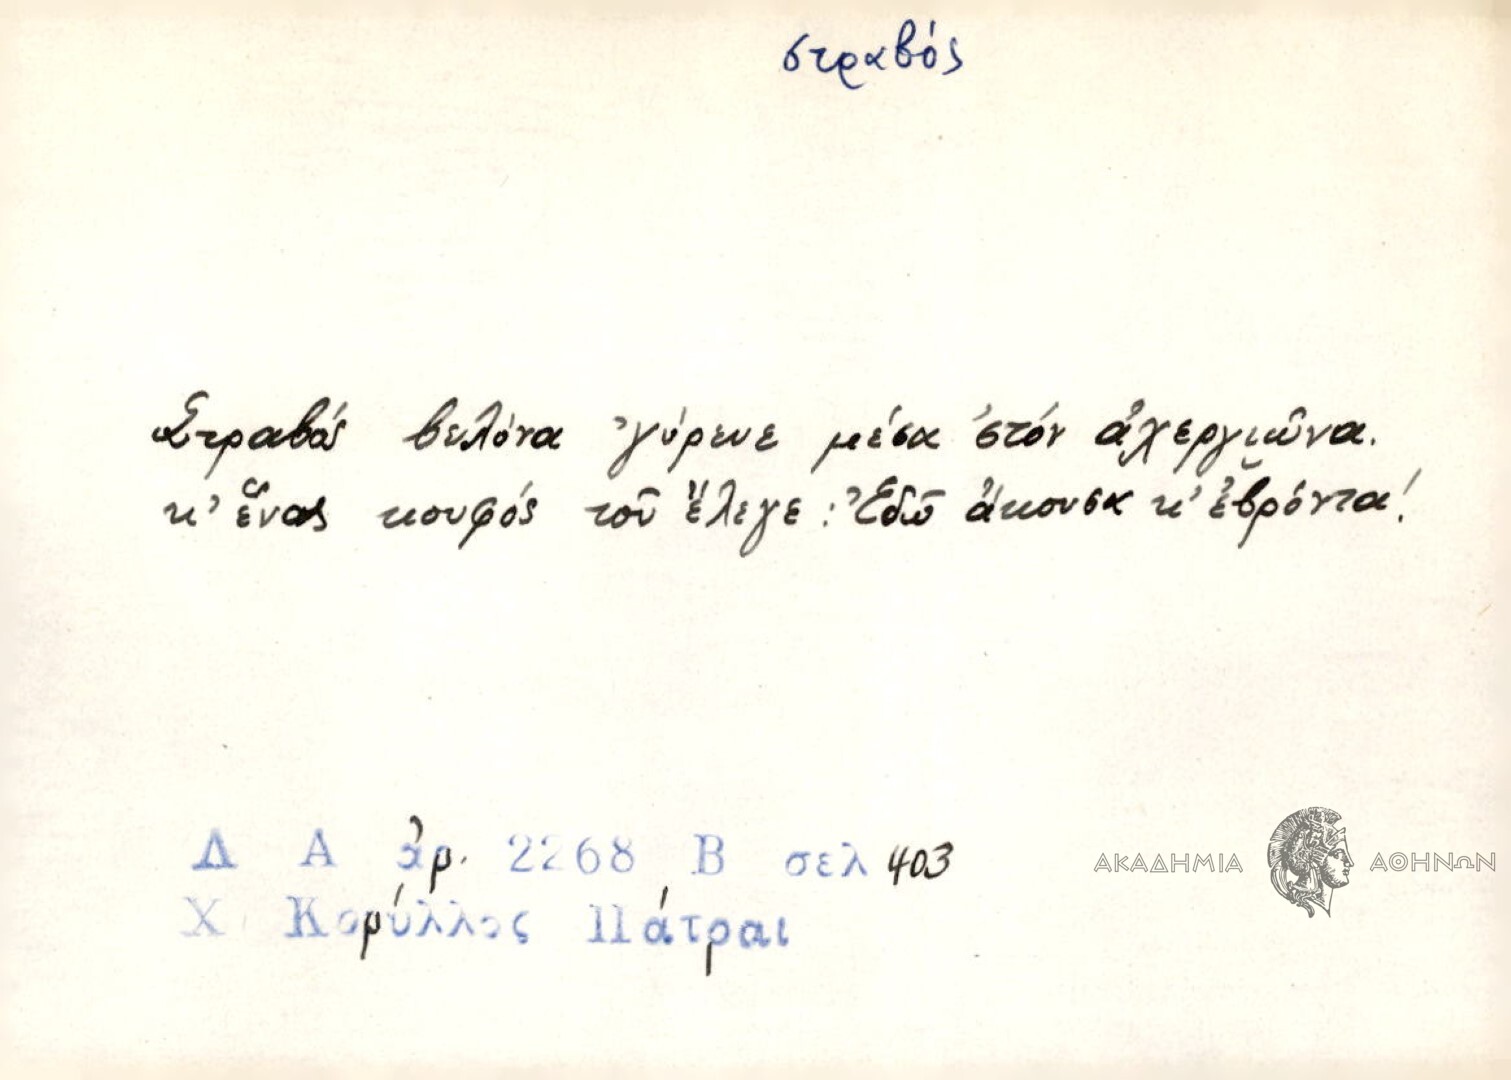 στραβός
Στραβός βελόνα 'γύρευε μέσα 'στόν ἀχεργιῶνα.
κ' ἕνας κουφός τοῦ ἔλεγε: Ἐδῶ ἄκουσα κ' ἐβρόντα!
Δ Α ἀρ. 2268 Β σελ 403
Χ Κορύλλος Πάτραι
ΑΚΑΔΗΜΙΑ ΑΘΗΝΩΝ